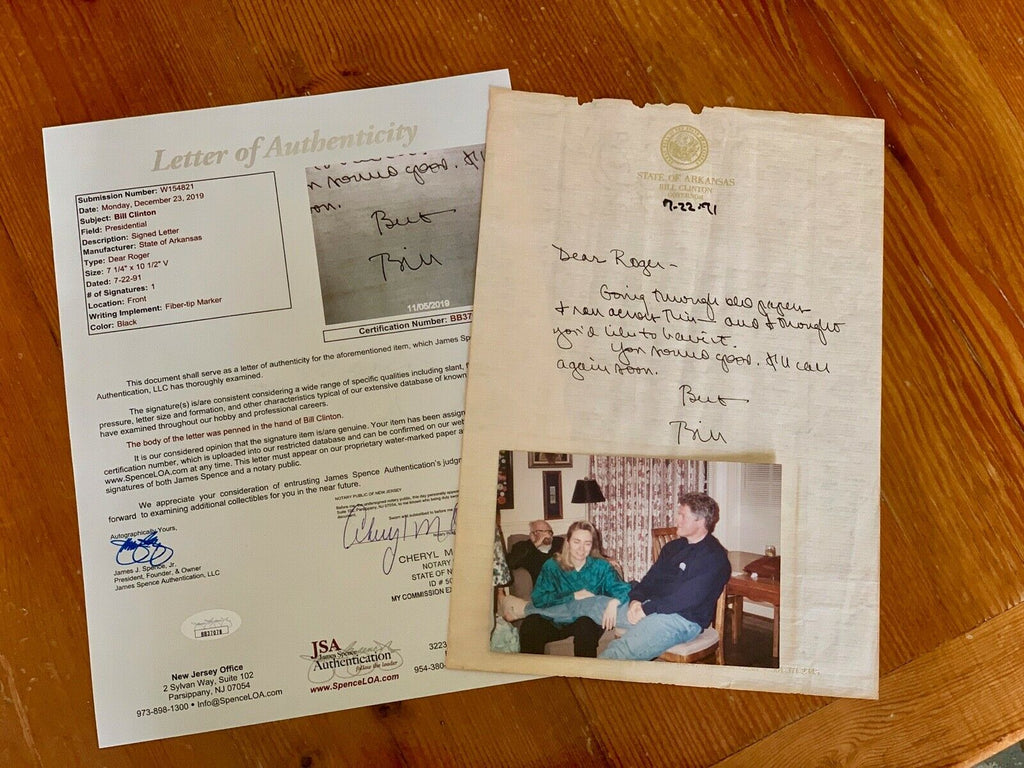 Letter of Authenticity
Submission Number: W154821
Date: Monday, December 23, 2019
Subject: Bill Clinton
Field: Presidential
Description: Signed Letter
Manufacturer: State of Arkansas
Type: Dear Roger
Size: 7 1/4" x 10 1/2" V
Dated: 7-22-91
# of Signatures: 1
Location: Front
Writing Implement: Fiber-tip Marker
Color: Black
sound good. I'll
on.
Best
Bill
11/05/2019
Certification Number: BB37
This document shall serve as a letter of authenticity for the aforementioned item, which James Spence
Authentication, LLC has thoroughly examined.
The signature(s) is/are consistent considering a wide range of specific qualities including slant,
pressure, letter size and formation, and other characteristics typical of our extensive database of known
have examined throughout our hobby and professional careers.
The body of the letter was penned in the hand of Bill Clinton.
It is our considered opinion that the signature item is/are genuine. Your item has been assign
certification number, which is uploaded into our restricted database and can be confirmed on our web
www.SpenceLOA.com at any time. This letter must appear on our proprietary water-marked paper a
signatures of both James Spence and a notary public.
We appreciate your consideration of entrusting James Spence Authentication's judg
forward to examining additional collectibles for you in the near future.
NOTARY PUBLIC OF NEW JERSEY
Autographically Yours,
James J. Spence, Jr.
President, Founder, & Owner
James Spence Authentication, LLC
Cheryl M
CHERYL M
NOTARY
STATE OF N
ID # 50
MY COMMISSION EX
BB37078
New Jersey Office
2 Sylvan Way, Suite 102
Parsippany, NJ 07054
973-898-1300 • Info@SpenceLOA.com
JSA
James Spence
Authentication
follow the leader
www.SpenceLOA.com
3223
954-380
STATE OF ARKANSAS
BILL CLINTON
GOVERNOR
7-22-91
Dear Roger -
Going through old papers
& ran across this - and thought
you'd like to have it.
You sound good. I'll call
again soon.
Best
Bill